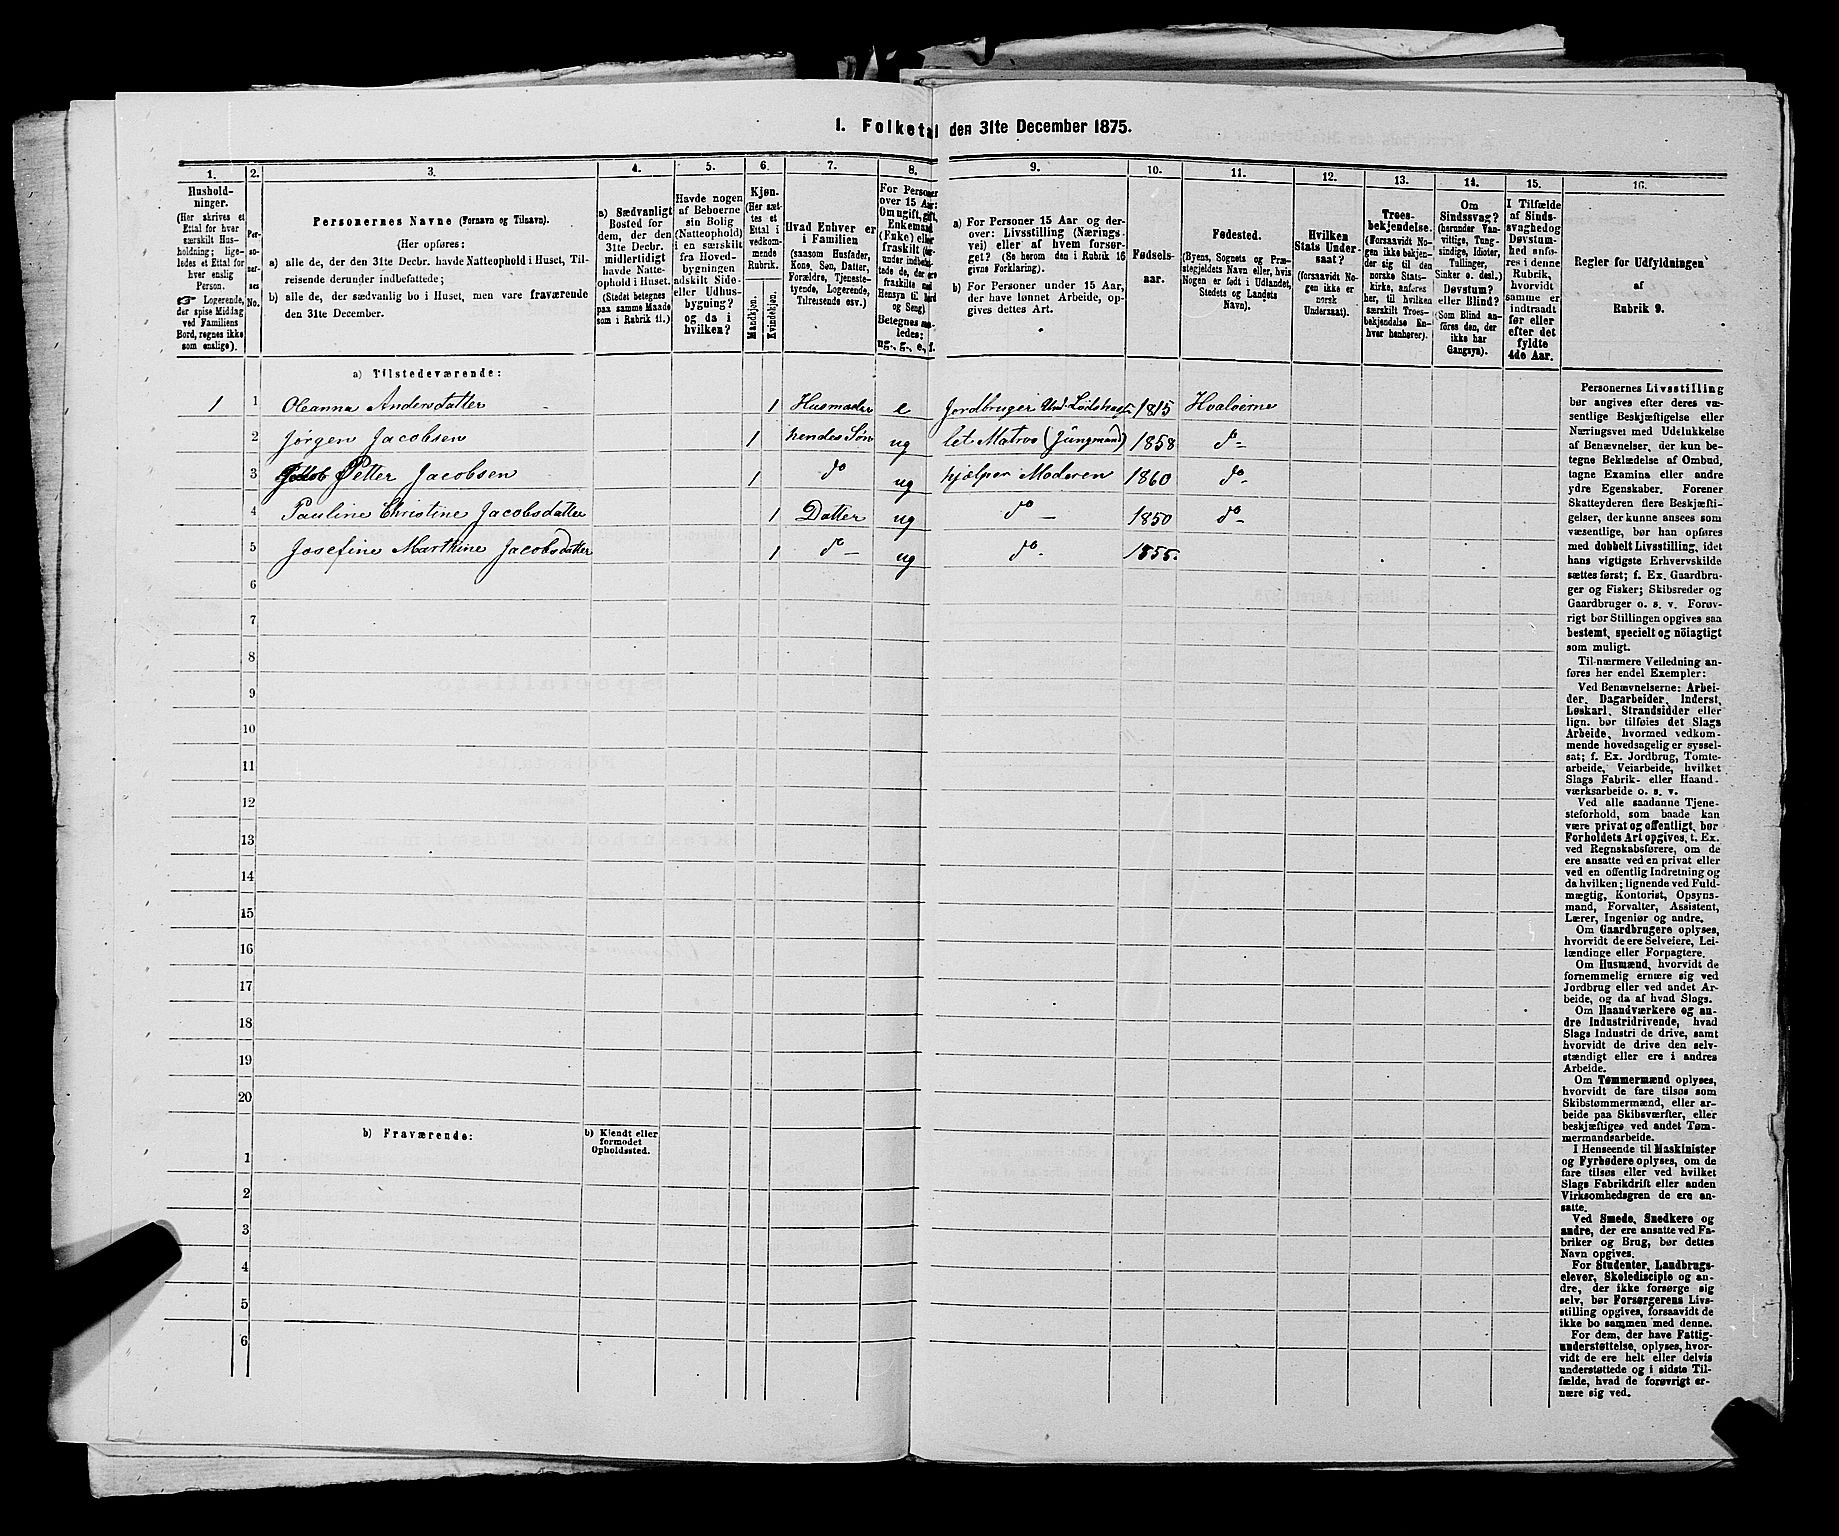 1. Folketal den 31te December 1875.
1.
2.
3.
4.
5.
6.
7.
8.
9.
10.
11.
12.
13.
14.
15.
16.
Hushold-
ninger.
(Her skrives et
Ettal for hver
særskilt Hus-
holdning; lige-
ledes et Ettal for
hver enslig
Person.
☞ Logerende,
der spise Middag
ved Familiens
Bord, regnes ikke
som enslige).
Per-
so-
ner-
nes
No.
Personernes Navne (Fornavn og Tilnavn).
(Her opføres:
a) alle de, der den 31te Decbr. havde Natteophold i Huset, Til-
reisende derunder indbefattede;
b) alle de, der sædvanlig bo i Huset, men vare fraværende
den 31te December.
a) Sædvanligt
Bosted for
dem, der den
31te Decbr.
midlertidigt
havde Natte-
ophold i Huset.
(Stedet betegnes
paa samme Maade
som i Rubrik 11.)
Havde nogen
af Beboerne
sin Bolig
(Natteophold)
i en særskilt
fra Hoved-
bygningen
adskilt Side-
eller Udhus-
bygning?
og da i
hvilken?
Kjøn.
(Her sæt-
tes et
Ettal i
vedkom-
mende
Rubrik.
Mandkjøn.
Kvindekjøn.
Hvad Enhver er
i Familien
(saasom Husfader,
Kone, Søn, Datter,
Forældre, Tjeneste-
tyende, Logerende,
Tilreisende osv.)
For Personer
over 15 Aar:
Om ugift, gift,
Enkemand
(Enke) eller
fraskilt (der-
under indbefat-
tede de, der ere
fraskilte med
Hensyn til Bord
og Seng)
Betegnes saa-
ledes:
ug., g., e., f.
a) For Personer 15 Aar og der-
over: Livsstilling (Nærings-
vei) eller af hvem forsør-
get? (Se herom den i Rubrik 16
givne Forklaring).
b) For Personer under 15 Aar,
der have lønnet Arbeide, op-
gives dettes Art.
Fødsels-
aar.
Fødested.
(Byens, Sognets og Præ-
stegjeldets Navn eller, hvis
Nogen er født i Udlandet,
Stedets og Landets
Navn).
Hvilken
Stats Under-
saat?
(forsaavidt No-
gen ikke er
norsk
Undersaat).
Troes-
bekjendelse.
(Forsaavidt No-
gen ikke bekjen-
der sig til den
norske Stats-
kirke, anføres
her, til hvilken
særskilt Troes-
bekjendelse En-
hver henhører).
Om
Sindssvag?
(herunder Van-
vittige, Tung-
sindige, Idioter,
Tullinger,
Sinker o. desl.)
Døvstum?
eller Blind?
(Som Blind an-
føres den, der
ikke har
Gangsyn).
I Tilfælde
af Sinds-
svaghed og
Døvstum-
hed anfø-
res i denne
Rubrik,
hvorvidt
samme er
indtraadt
før eller
efter det
fyldte
4de Aar.
Regler for Udfyldningen
af
Rubrik 9.
a) Tilstedeværende:
1 1 Oleanna Andersdatter 1 Husmoder e Jordbruger 1815 Hvaløerne
2 Jørgen Jacobsen 1 hendes Søn ug let Matros (Jüngmand) 1858 do -
3 Petter Jacobsen 1 do ug hjælper Moderen 1860 do -
4 Pauline Christine Jacobsdatter 1 Datter ug do - 1850 do -
5 Josefine Marthine Jacobsdatter 1 do - ug do - 1855.
6
7
8
9
10
11
12
13
14
15
16
17
18
19
20
b) Fraværende:
b) Kjendt eller
formodet
Opholdssted.
1
2
3
4
5
6
Personernes Livsstilling
bør angives efter deres væ-
sentlige Beskjæftigelse eller
Næringsvei med Udelukkelse
af Benævnelser, der kun be-
tegne Beklædelse af Ombud,
tagne Examina eller andre
ydre Egenskaber. Forener
Skatteyderen flere Beskjæfti-
gelser, der kunne ansees som
væsentlige, bør han opføres
med dobbelt Livsstilling, idet
hans vigtigste Erhvervskilde
sættes først; f. Ex. Gaardbru-
ger og Fisker; Skibsreder og
Gaardbruger o. s. v. Forøv-
rigt bør Stillingen opgives saa
bestemt, specielt og nöiagtigt
som muligt.
Til nærmere Veiledning an-
føres her endel Exempler:
Ved Benævnelserne: Arbei-
der, Dagarbeider, Inderst,
Løskarl, Strandsidder eller
lign. bør tilføies det Slags
Arbeide, hvormed vedkom-
mende hovedsagelig er syssel-
sat; f. Ex. Jordbrug, Tomte-
arbeide, Veiarbeide, hvilket
Slags Fabrik- eller Haand-
værksarbeide o. s. v.
Ved alle saadanne Tjene-
steforhold, som baade kan
være privat og offentligt, bør
Forholdets Art opgives, t. Ex.
ved Regnskabsførere, om de
ere ansatte ved en privat eller
ved en offentlig Indretning og
da hvilken; lignende ved Fuld-
mægtig, Kontorist, Opsyns-
mand, Forvalter, Assistent,
Lærer, Ingeniør og andre.
Om Gaardbrugere oplyses,
hvorvidt de ere Selveiere, Lei-
lændinge eller Forpagtere.
Om Husmænd, hvorvidt de
fornemmelig ernære sig ved
Jordbrug eller ved andet Ar-
beide, og da af hvad Slags.
Om Haandværkere og an-
dre Industridrivende, hvad
Slags Industri de drive, samt
hvorvidt de drive den selv-
stændigt eller ere i andres
Arbeide.
Om Tømmermænd oplyses,
hvorvidt de fare tilsøs som
Skibstømmermænd, eller ar-
beide paa Skibsværfter, eller
beskjæftiges ved andet Tøm-
mermandsarbeide.
I Henseende til Maskinister
og Fyrbødere oplyses, om de
fare tilsøs eller ved hvilket
Slags Fabrikdrift eller anden
Virksomhedsgren de ere an-
satte.
Ved Smede, Snedkere og
andre, der ere ansatte ved Fa-
briker og Brug, bør dettes
Navn opgives.
For Studenter, Landbrugs-
elever, Skoledisciple og an-
dre, der ikke forsørge sig
selv, bør Forsørgerens Livs-
stilling opgives, forsaavidt de
ikke bo sammen med denne.
For dem, der have Fattig-
understøttelse, oplyses, hvor-
vidt de ere helt eller delvis
understøttede og i sidste Til-
fælde, hvad de forøvrigt er-
nære sig ved.